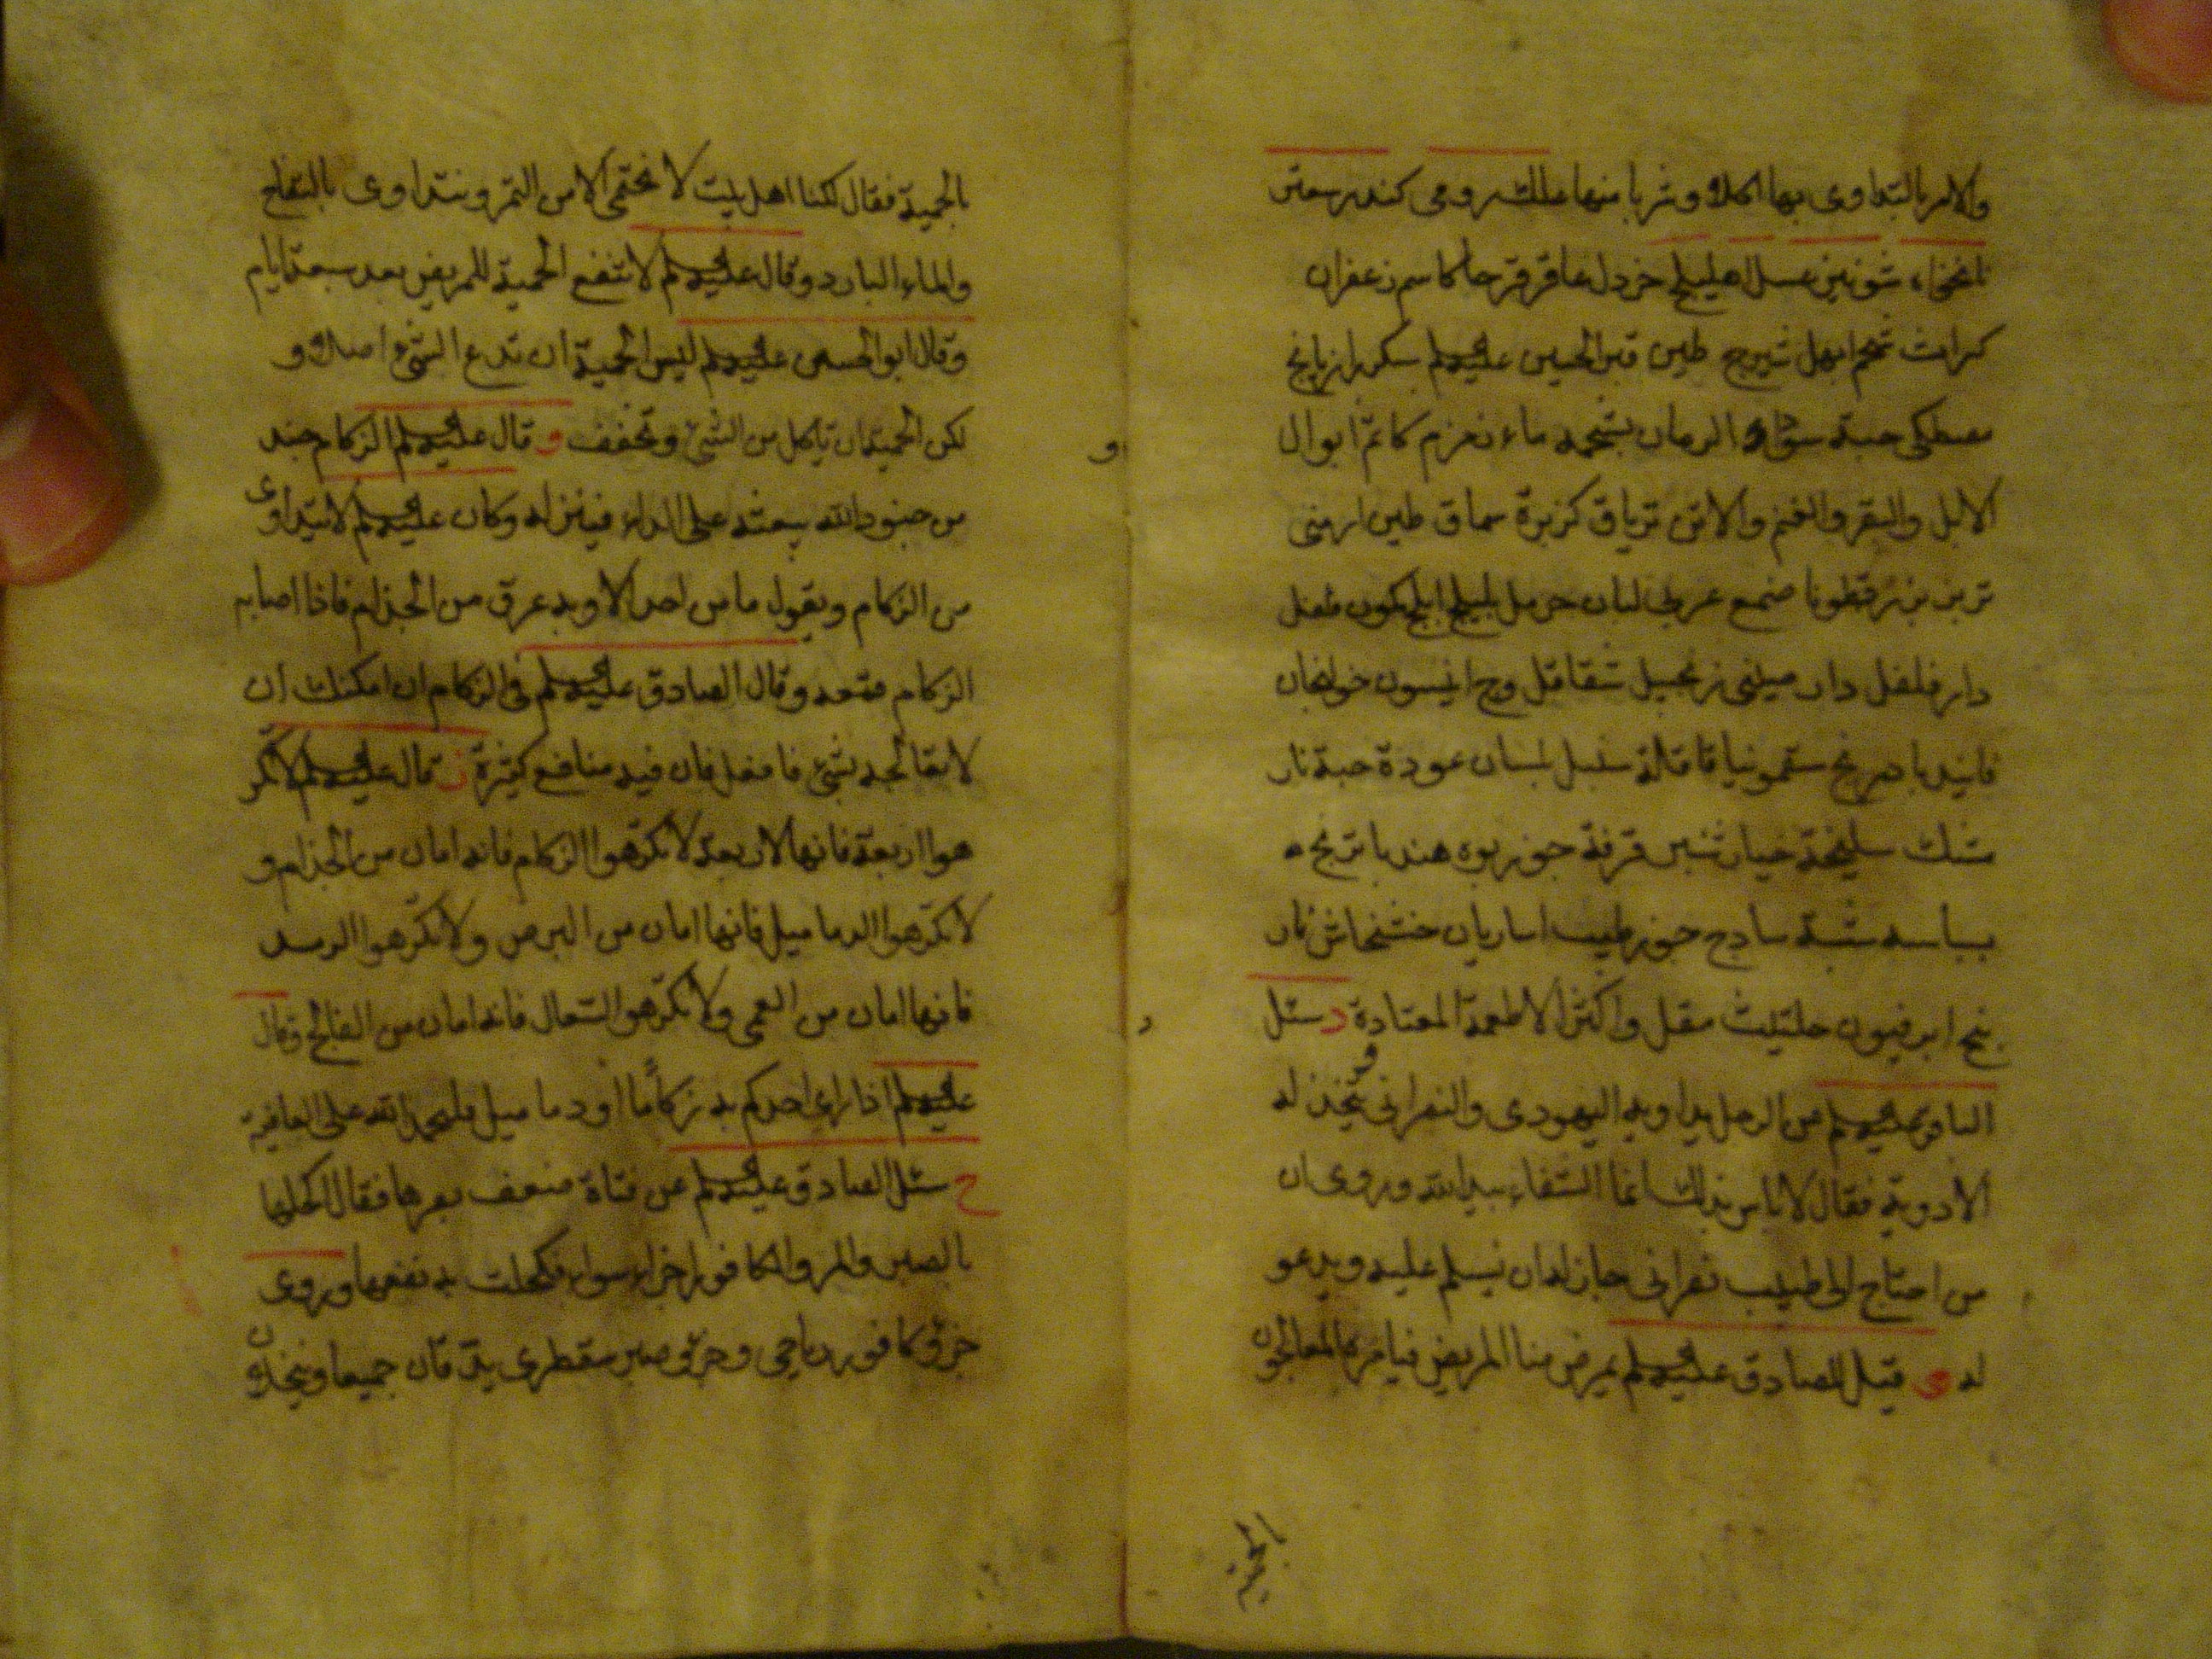 والامر بالتداوى بها اكلا وشربا منها علك رومى كندر سعتر
نانخواه شونيز عسل اهليلج خردل عاقرقرحا كاسم زعفران
كراث شحم ابهل شيرج طين قبر الحسين عليهم سكر رازيانج
مصطكى حبة سوداء الرمان بشحمه ماء زمزم كاتم ابوال
الابل والبقر والغنم والاتن ترياق كزبرة سماق طين ارمنى
تربد بزر قطونا صمغ عربى لبان حرمل بليلج املج كمون فلفل
دار فلفل دار صينى زنجبيل شقاقل وج انيسون خولنجان
فانيد بادرنج سقمونيا قاقلة سنبل بلسان عودة حبة نار
مشك سليخة خيار شنبر قرفة جوزبوه هندبا ترنج
بسباسه شبة سادج جوز طيب اساريان خشخاش نار
بنج ابرفيون حلتيت مقل واكثر الاطعمة المعتادة د سئل
الباقر عليهم عن الرجل يداويه اليهودى والنصرانى ويتخذ له
الادوية فقال لا باس بذلك انما الشفاء بيد الله وروى ان
من احتاج الى طبيب نصرانى جاز له ان يسلم عليه ويدعو
له ى قيل للصادق عليهم يمرض منا المريض فيامره المعالجون
بالحمية
بالحمية فقال لكنا اهل بيت لا نحتمى الا من التمر ونتداوى بالتفاح
والماء البارد وقال عليهم لا تنفع الحمية للمريض بعد سبعة ايام
وقال ابو الحسن عليهم ليس الحمية ان تدع الشئ اصلا و
لكن الحمية ان تاكل من الشئ وتخفف و قال عليهم الزكام جند
من جنود الله يبعثه على الداء فينزله وكان عليهم لا يتداوى
من الزكام ويقول ما من احد الا وبه عرق من الجذام فاذا اصابه
الزكام قمعه وقال الصادق عليهم فى الزكام ان امكنك ان
لا تعالجه بشئ فافعل فان فيه منافع كثيرة ز قال عليهم لا تكر
هوا اربعة فانها لاربعة لا تكرهوا الزكام فانه امان من الجذام و
لا تكرهوا الدماميل فانها امان من البرص ولا تكرهوا الرمد
فانها امان من العمى ولا تكرهوا السعال فانه امان من الفالج وقال
عليهم اذا راى احدكم به زكاما او دماميل فليحمد الله على العافية
ح سئل الصادق عليهم عن فتاة ضعف بصرها فقال اكحلها
بالصبر والمر والكافور اجزاء سواء فكحلت به نفعها وروى
جزؤ كافور رباحى وجزؤ صبر سقطرى يدقان جميعا وينخلان